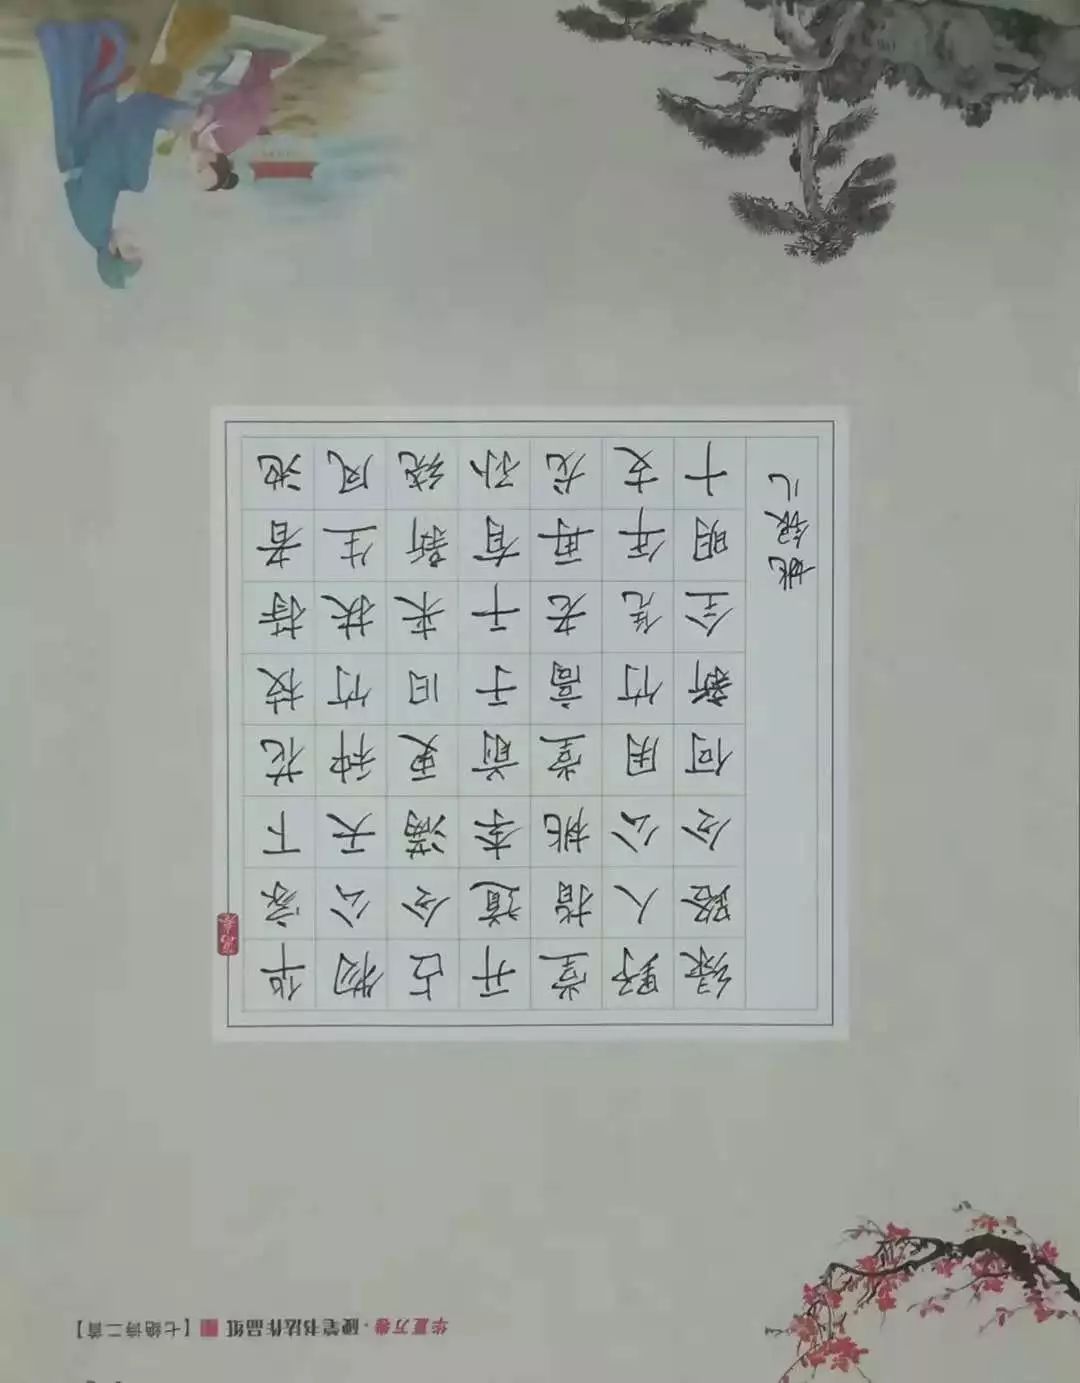 华夏万卷·硬笔书法作品纸【七绝诗二首】
绿野堂开占物华
路人指道令公家
令公桃李满天下
何用堂前更种花
新竹高于旧竹枝
全凭老干来扶持
明年再有新生者
十丈龙孙绕凤池
姚银儿